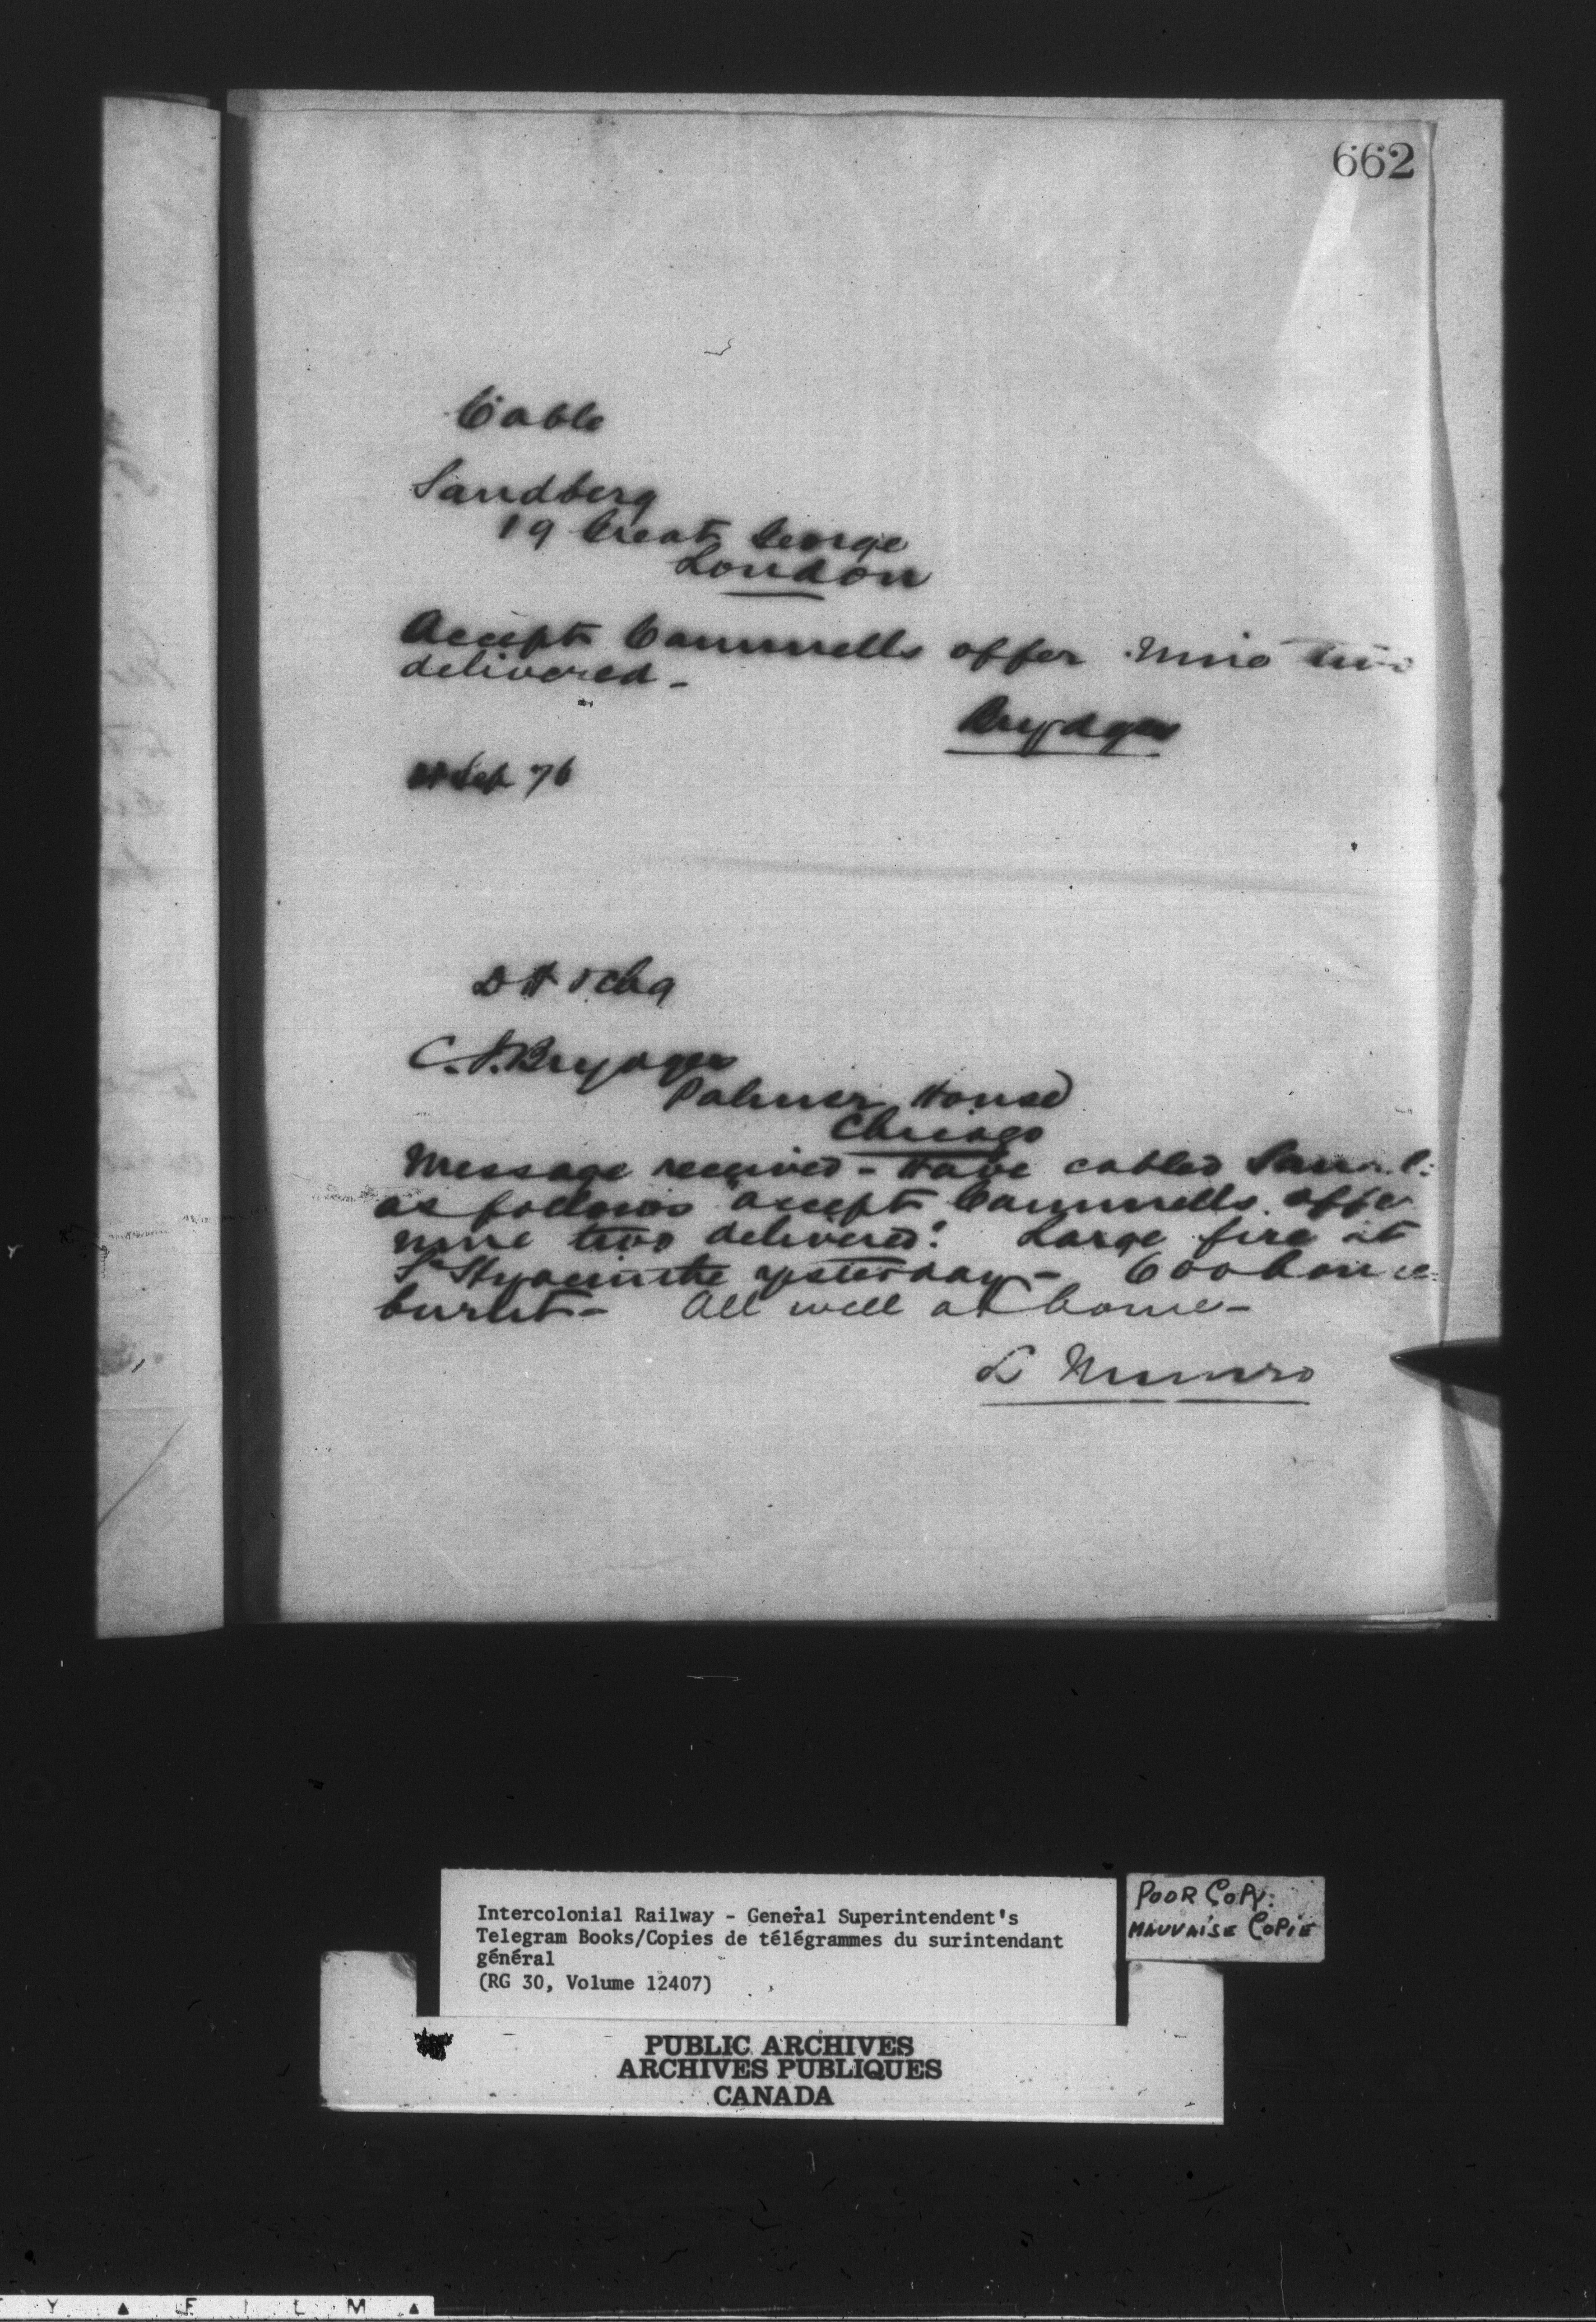 662
Cable
Sandberg
19 Great George
London
Accept Cammells offer nine two
delivered -
Brydges
Sep 76
D H & chg
C. J. Brydges
Palmer House
Chicago
Message received - Have cabled
as follows "accept Cammells offer
nine two delivered." Large fire at
St Hyacinthe yesterday - 600 houses
burnt - All well at home -
L Munro
Intercolonial Railway - General Superintendent's
Telegram Books/Copies de télégrammes du surintendant
général
(RG 30, Volume 12407)
POOR COPY.
MAUVAISE COPIE
PUBLIC ARCHIVES
ARCHIVES PUBLIQUES
CANADA
F I L M